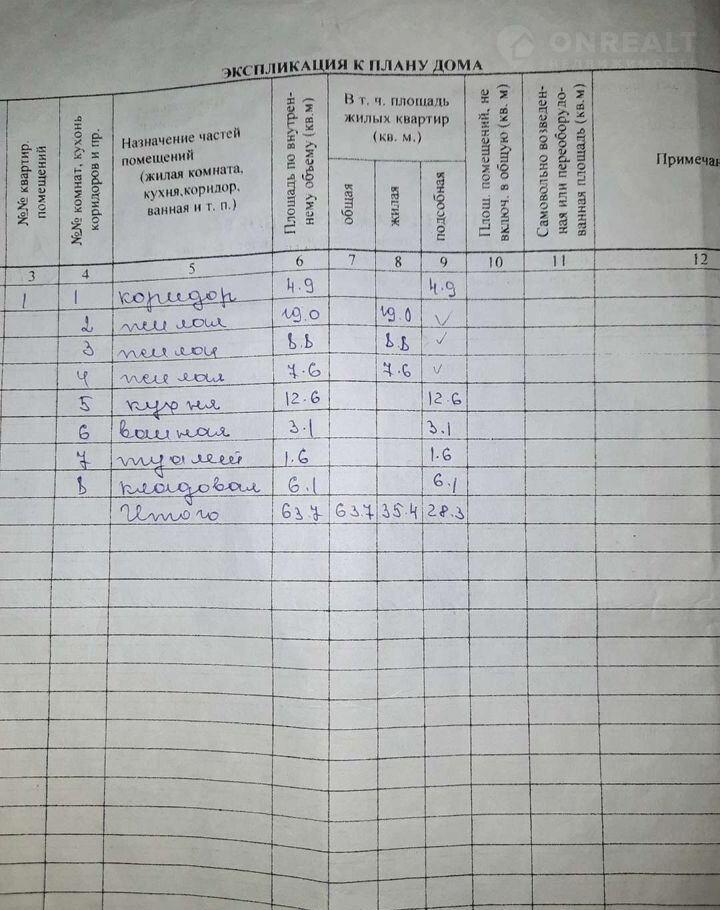 ONREALT
НЕДВИЖИМОСТЬ
ЭКСПЛИКАЦИЯ К ПЛАНУ ДОМА
№№ квартир.
помещений
№№ комнат, кухонь
коридоров и пр.
Назначение частей
помещений
(жилая комната,
кухня,коридор,
ванная и т. п.)
Площадь по внутрен-
нему объему (кв.м)
В т. ч. площадь
жилых квартир
(кв. м.)
общая
жилая
подсобная
Площ. помещений, не
включ. в общую (кв. м)
Самовольно возведен-
ная или переоборудо-
ванная площадь (кв.м)
Примечан
3 4 5 6 7 8 9 10 11 12
1 1 коридор 4.9 4.9
2 жилая 19.0 19.0 ✓
3 жилая 8.8 8.8 ✓
4 жилая 7.6 7.6 ✓
5 кухня 12.6 12.6
6 ванная 3.1 3.1
7 туалет 1.6 1.6
8 кладовая 6.1 6.1
Итого 63.7 63.7 35.4 28.3